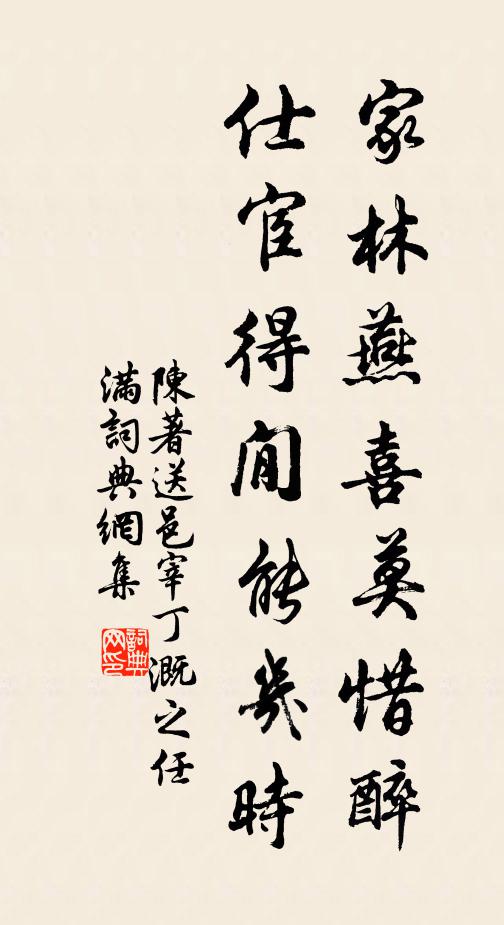 家林燕喜莫惜醉
仕宦得閒能幾時
陳著送邑宰丁溉之任
滿詞典網集
詞典网印